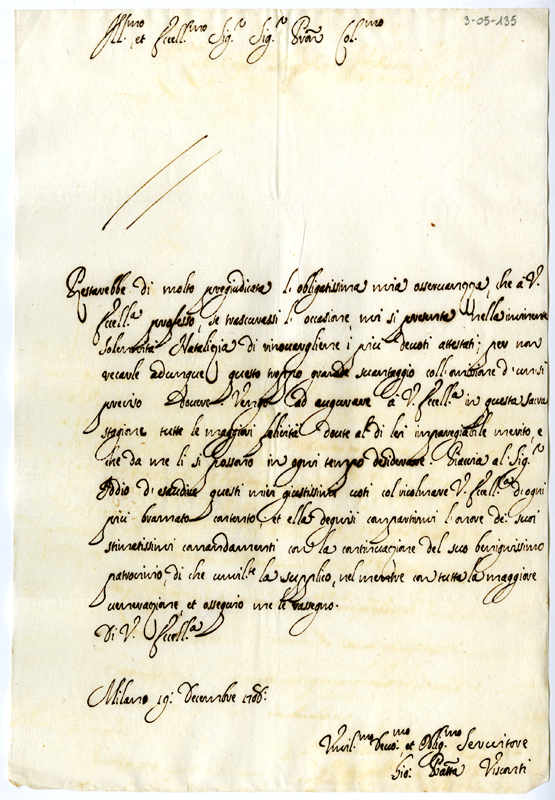 3-05-135
Ill.mo et Eccell.mo Sig.r Sig.r Pron Col.mo
Restarebbe di molto pregiudicata l'obligatissima mia osservanza, che à V.
Eccell.a professo, se trascurassi l'occasione mi si presenta nella imminente
solennità Natalizia di rinovarglierne i più devoti attestati; per non
recarle adunque questo troppo grande svantaggio coll'omissione d'un sì
preciso dovere Vengo ad augurare à V. Eccell.a in questa sacra
stagione tutte le maggiori felicità dovute al di lei impareggiabile merito, e
che da me li si possano in ogni tempo desiderare. Piaccia al Sig.r
Iddio d'esaudire questi miei giustissimi voti col ricolmare V. Eccell.a di ogni
più bramato contento, et ella degnisi compartirmi l'onore de' suoi
stimatissimi comandamenti con la continuazione del suo benignissimo
patrocinio, di che umil.te la supplico, nel mentre con tutta la maggiore
venerazione, et ossequio me le rassegno.
Di V. Eccell.a
Milano 19: Decembre 1706.
Umil.mo Devo.mo et Oblig.mo Servitore
Gio: Batta Visconti